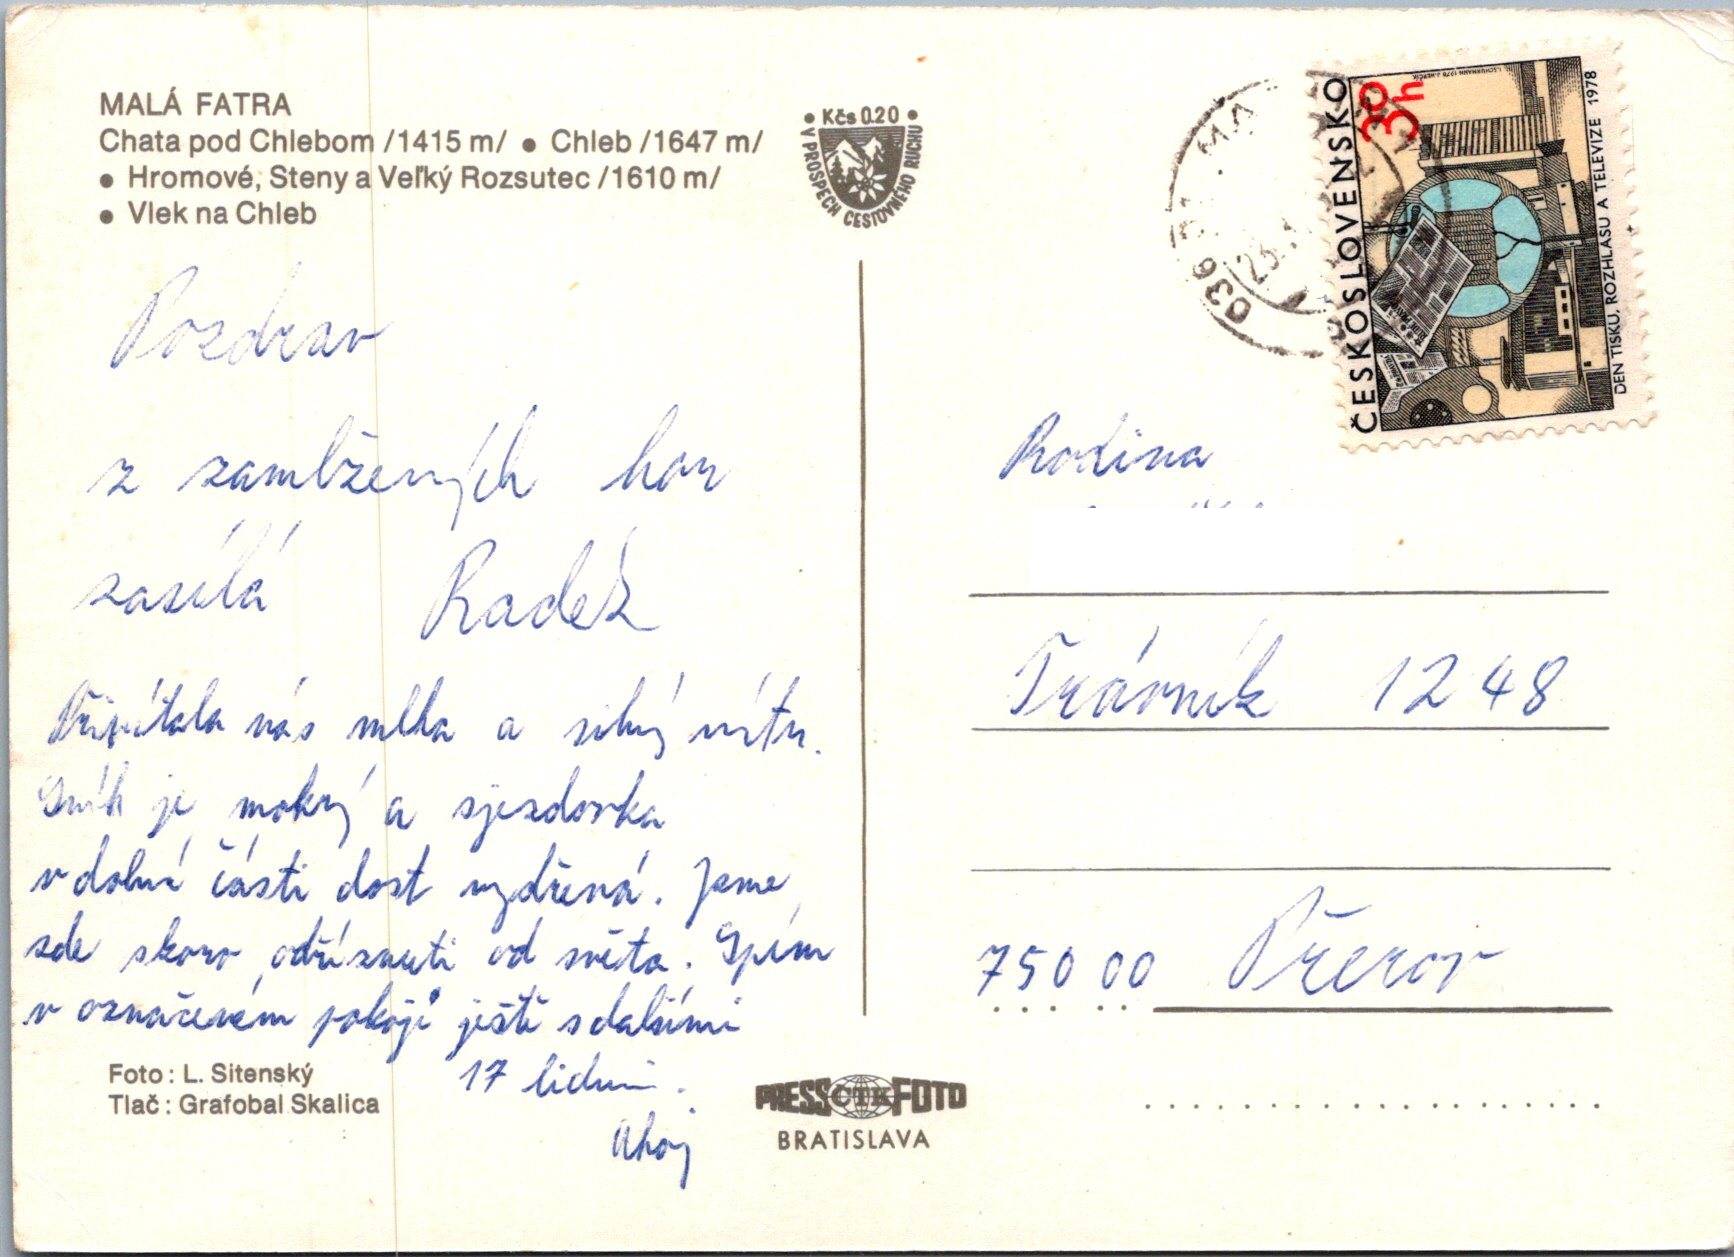 MALÁ FATRA
Chata pod Chlebom /1415 m/ • Chleb /1647 m/
• Hromové, Steny a Veľký Rozsutec /1610 m/
• Vlek na Chleb
• Kčs 0.20 •
V PROSPECH CESTOVNÉHO RUCHU
Pozdrav
z zamlžených hor
zasílá Radek
Přivítala nás mlha a silný vítr.
Sníh je mokrý a sjezdovka
v dolní části dost vydřená. Jsme
zde skoro odříznuti od světa. Spím
v označeném pokoji ještě s dalšími
17 lidmi.
Ahoj
Foto: L. Sitenský
Tlač: Grafobal Skalica
PRESS ČTK FOTO
BRATISLAVA
036
23.
ČESKOSLOVENSKO
30h
DEN TISKU, ROZHLASU A TELEVIZE 1978
Rodina
Trávník 1248
750 00 Přerov